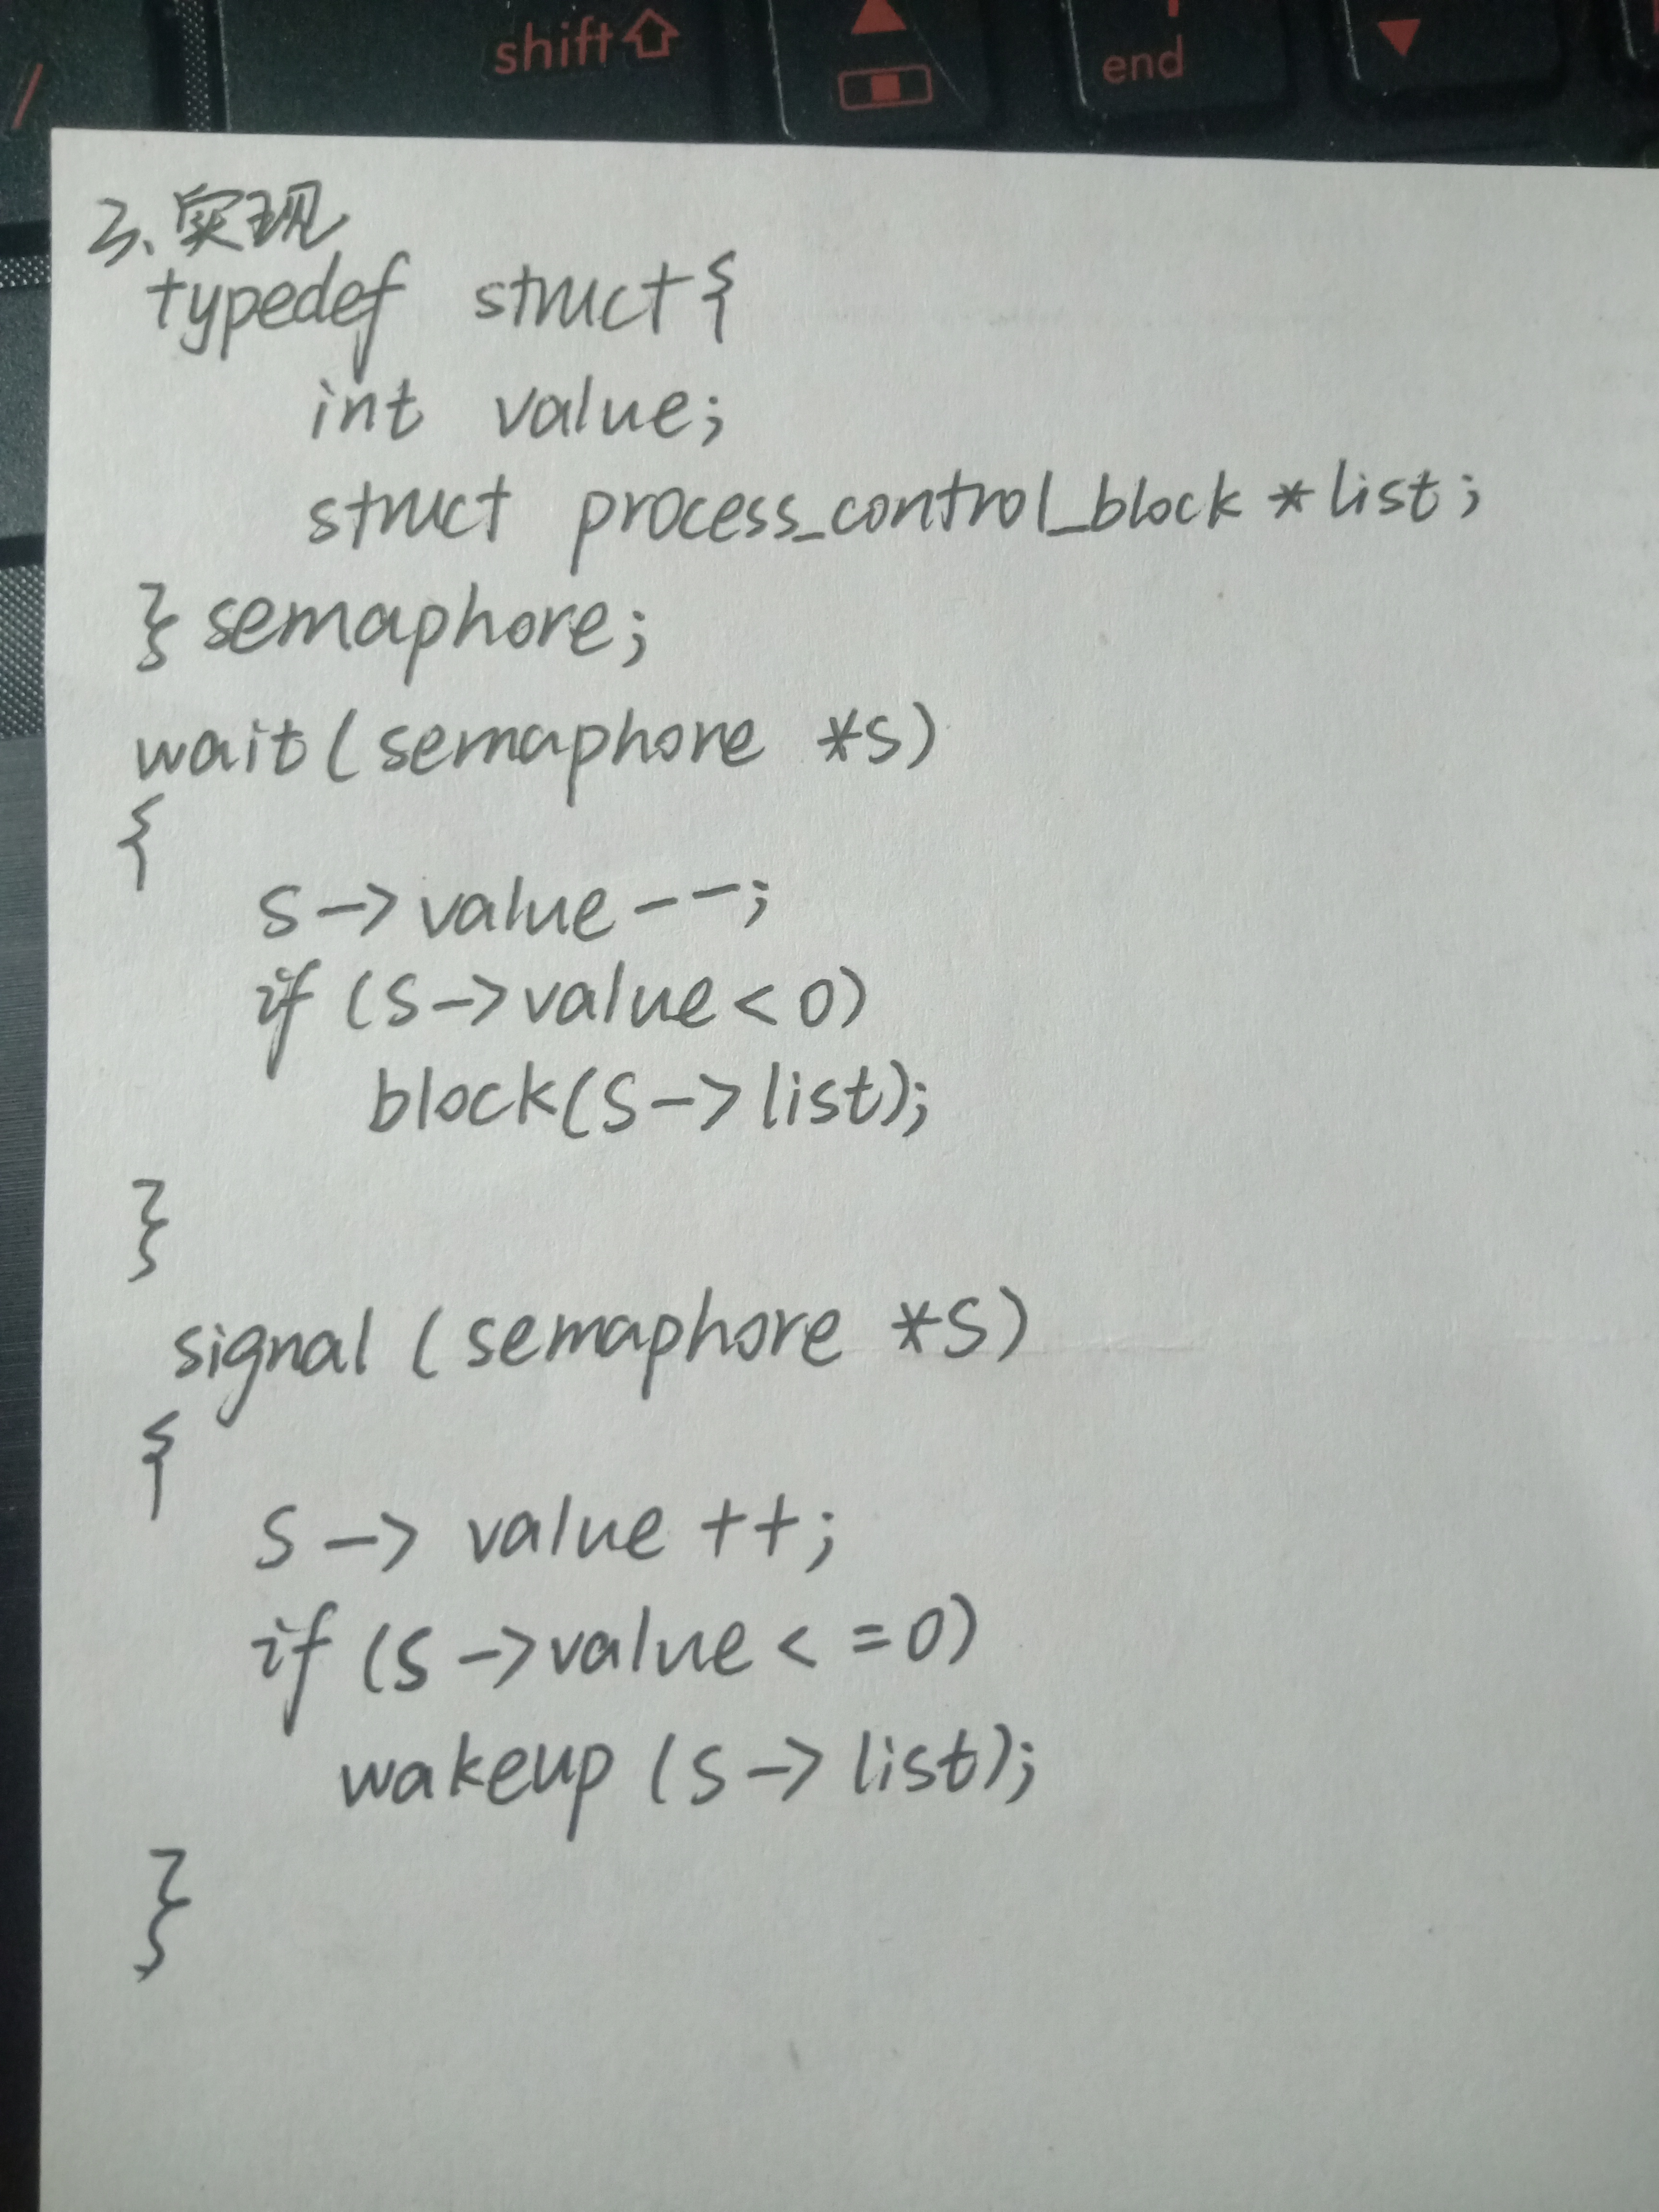 / shift end
3、实现
typedef struct{
int value;
struct process_control_block * list;
} semaphore;
wait (semaphore *s)
{
s -> value --;
if (s -> value < 0)
block(s -> list);
}
signal (semaphore *s)
{
s -> value ++;
if (s -> value < = 0)
wakeup (s -> list);
}